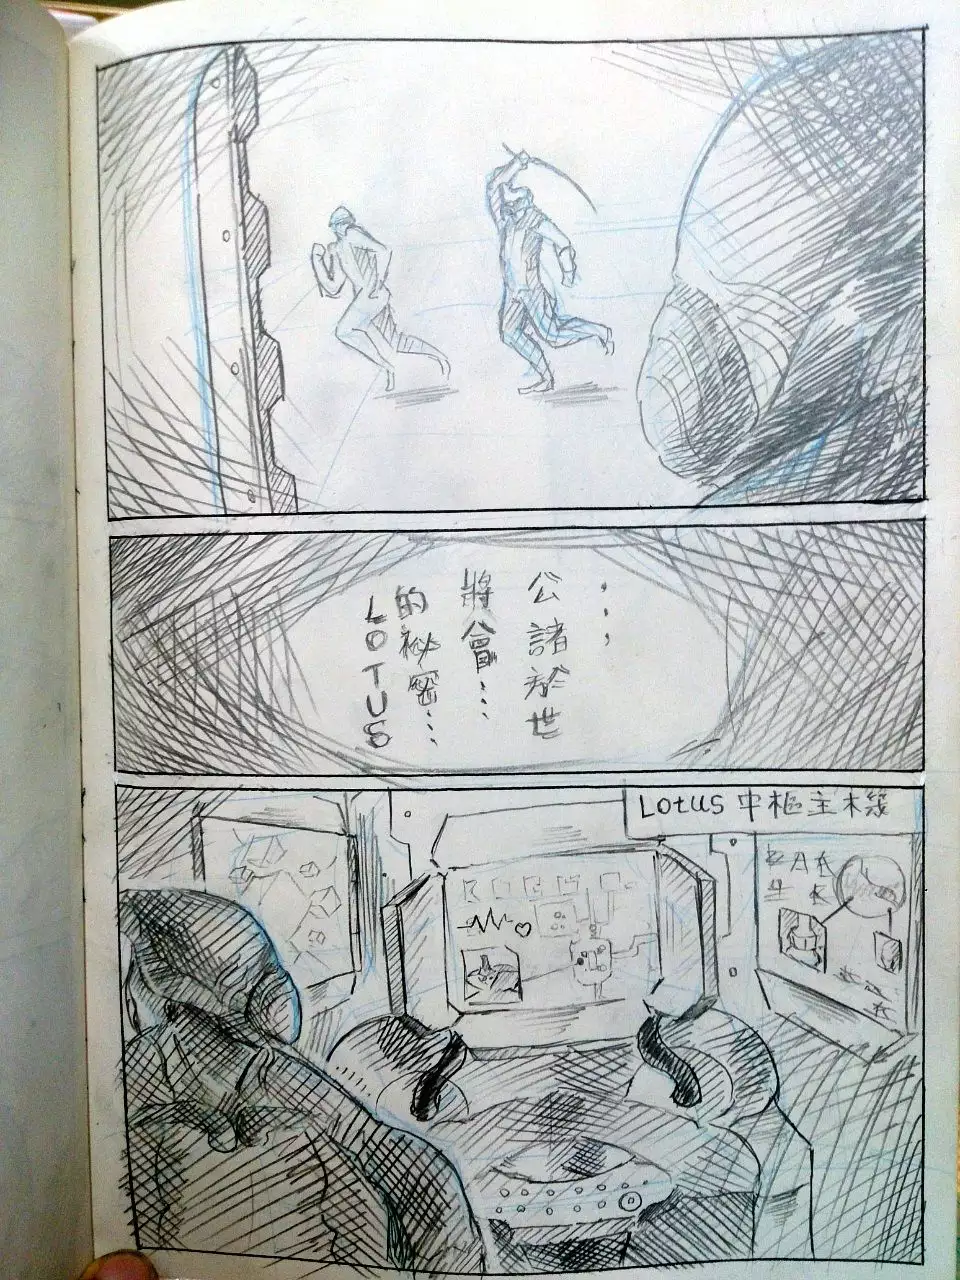 LOTUS
的秘密…
將會…
公諸於世
，，，
Lotus 中樞主機